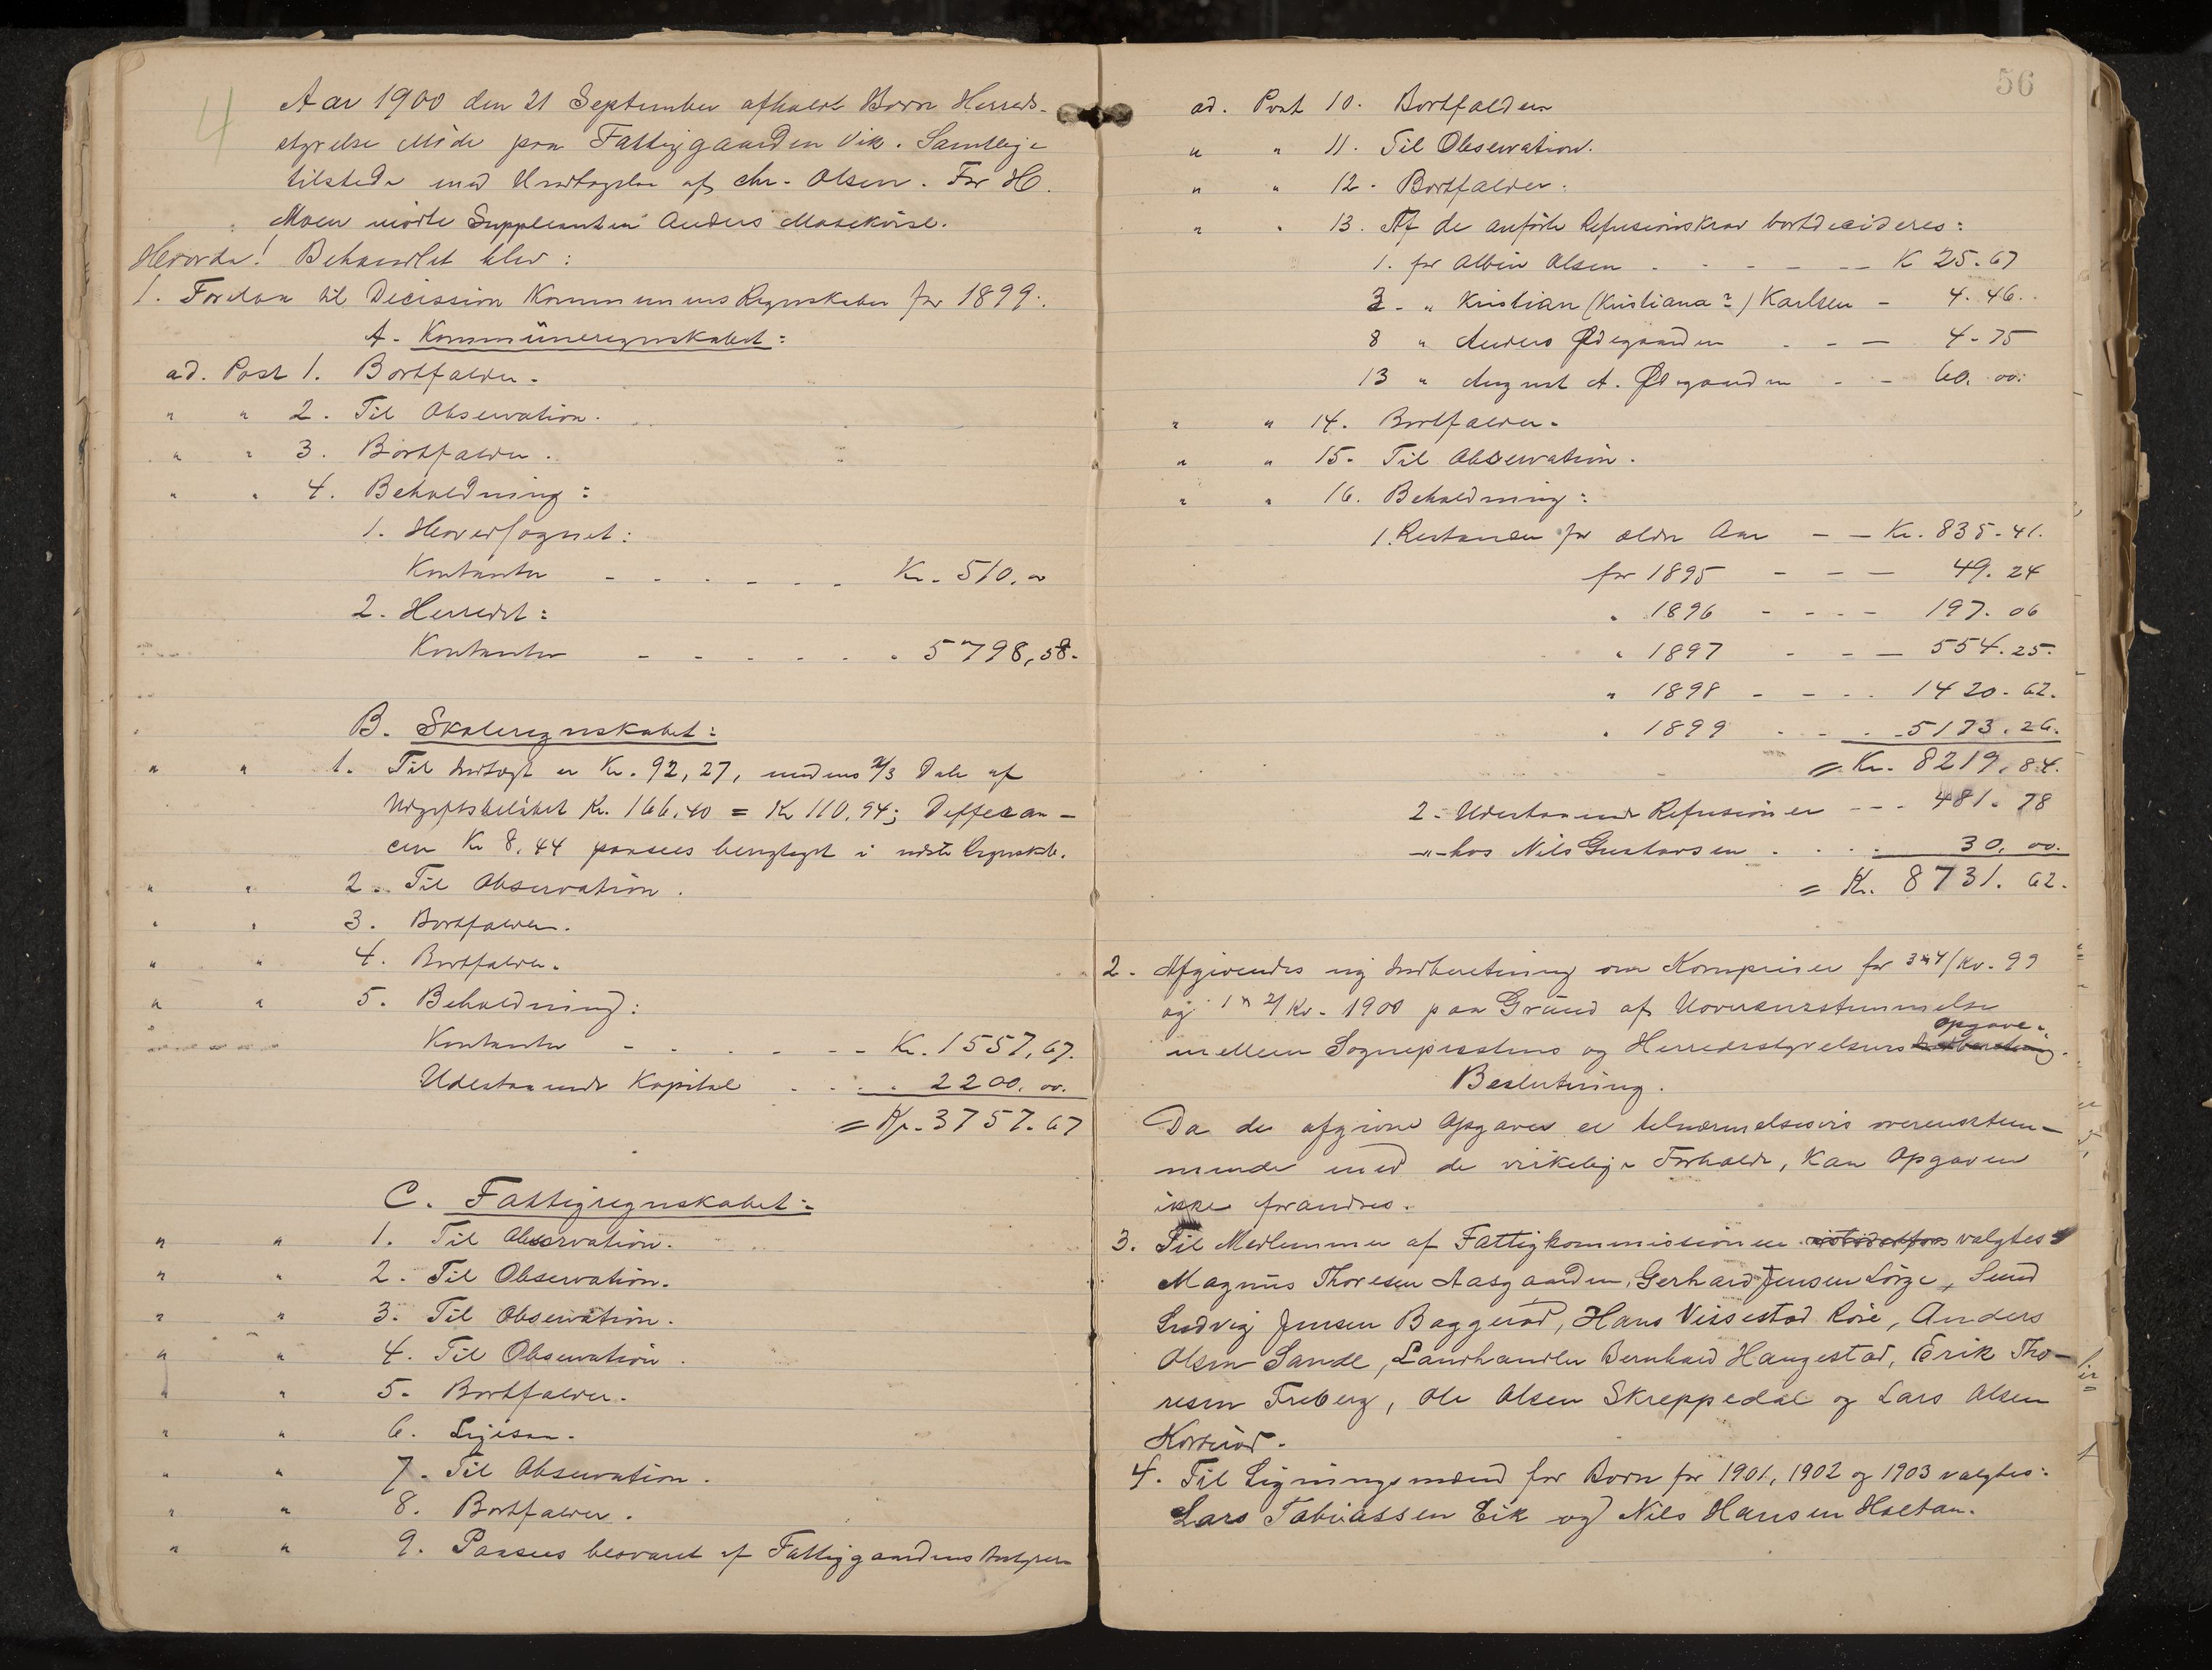 Aar 1900 den 21 September afholdt Borre Herreds-
styrelse Möde paa Fattiggaarden Vik. Samtlige
tilstede med Undtagelse af Chr. Olsen. For H.
Moen mödte Supplanten Anders
Hvorda! Behandlet blev:
1. Foretoges til Decission Kommunens Regnskaber for 1899:
A. Kommüneregnskabet:
ad. Post 1. Bortfalder.
" " 2. Til Observation.
" " 3. Bortfalder.
" " 4. Beholdning:
1. Hovedsognet:
Kontanter - - - - - - Kr. 510.00
2. Herredet:
Kontanter - - - - - - " 5798,58.
B. Skoleregnskabet:
" " 1. Til Indtægt er Kr. 92,27, medens 2/3 Dele af
Udgiftsbelöbet Kr. 166,40 = Kr 110,94; Defferan-
cen Kr 8,44 paasees benyttet i næste Regnskab.
" " 2. Til Observation.
" " 3. Bortfalder.
" " 4. Bortfalder.
" " 5. Beholdning:
Kontanter - - - - - - Kr. 1557,67.
Udestaaende Kapital . . . . 2200,00.
= Kr. 3757.67
C. Fattigregnskabet:
" " 1. Til Observation.
" " 2. Til Observation.
" " 3. Til Observation.
" " 4. Til Observation.
" " 5. Bortfalder.
" " 6. Ligesaa.
" " 7. Til Observation.
" " 8. Bortfalder.
" " 9. Paasees besvaret af Fattiggaardens Bestyrer
56
ad. Post 10. Bortfalder
" " 11. Til Observation.
" " 12. Bortfalder.
" " 13. Af de anförte Refusionskrav bortdecideres:
1. for Albin Olsen - - - - - K 25.67
3 - " Kristian (Kristiana?) Karlsen - 4.46.
8 " Anders Ødegaarden - - - 4-75
13 " August A. Ødegaarden - - 60.00.
" " 14. Bortfalder.
" " 15. Til Observation.
" " 16. Beholdning:
1. Restancer for ældre Aar - - Kr. 835.41.
for 1895 - - - 49.24
" 1896 - - - - 197.06
" 1897 - - - 554.25.
" 1898 - - - - 1420.62.
" 1899 - - - 5173.26.
= Kr. 8219,84.
2. Udestaaende Refusioner - - - 481.78
-"- hos Nils Gustavsen . . . 30,00.
= Kr. 8731.62.
2. Afgivendes ny Indberetning om Kornpriser for 3 & 4/Kv. 99
og 1 & 2/Kv. 1900 paa Gründ af Uoverensstemmelse
opgave.
mellem Sogneprestens og Herredsstyrelsens Indberetning.
Beslutning.
Da de afgivne Opgaver er tilnærmelsesvis overensstem-
mende med de virkelige Forholde, kan Opgaven
ikke forandres.
3. Til Medlemmer af Fattigkommissionen valgtes
Magnus Thoresen Aasgaarden, Gerhard Jensen Sörge, Sund
Ludvig Jensen Baggeröd, Hans Virsestad Röre, Anders
Olsen Sande, Landhandler Bernhard Haugestad, Erik Tho-
resen Freberg, Ole Olsen Skreppedal og Lars Olsen

4. Til Ligningsmænd for Borre for 1901, 1902 og 1903 valgtes:
Lars Tobiassen Eik og Nils Hansen Holtan.